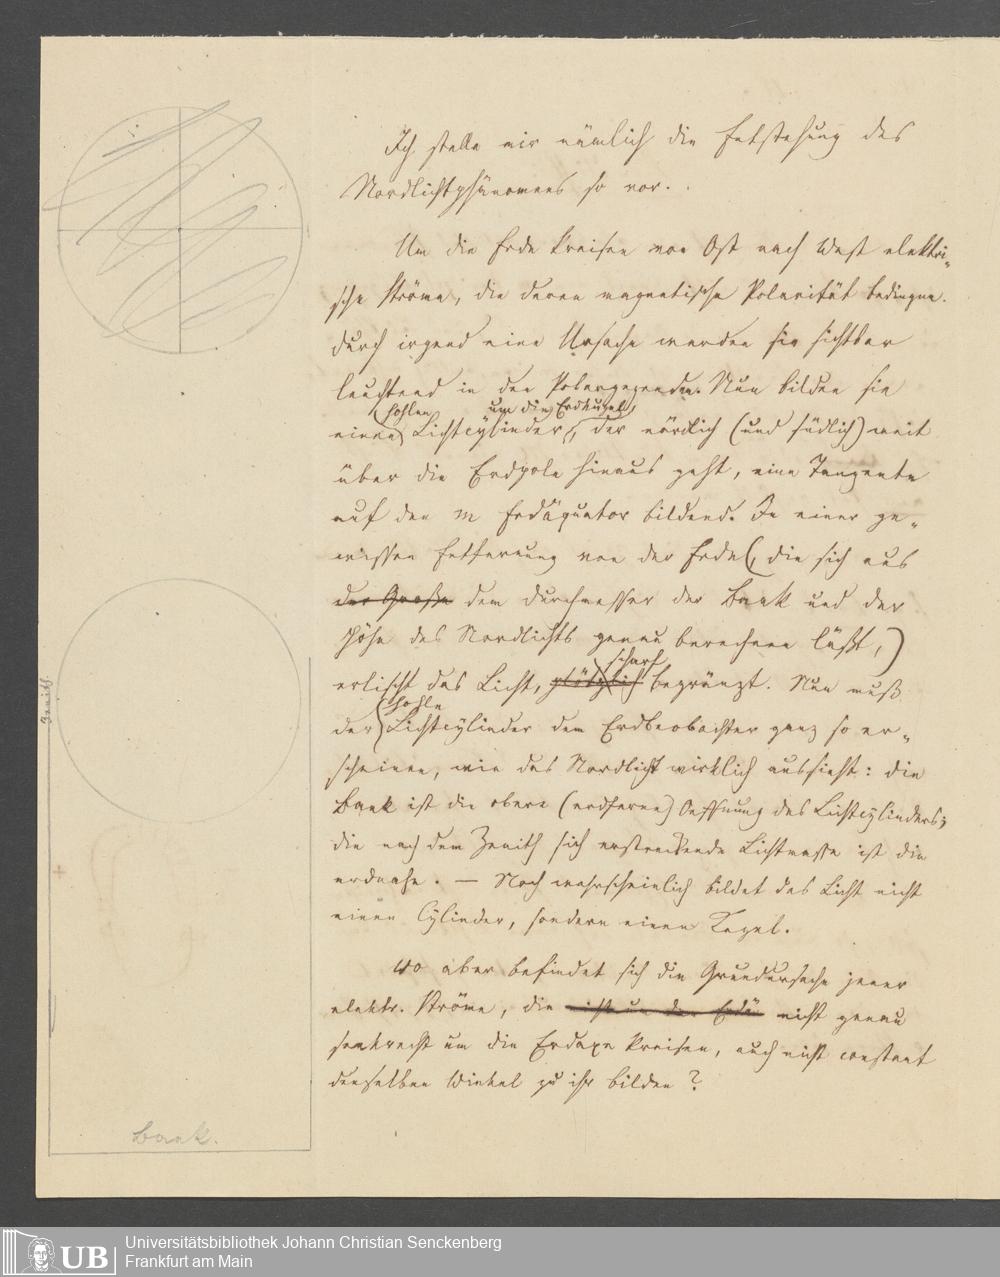 Ich stelle mir nämlich die Entstehung des
Nordlichtphänomens so vor.
Um die Erde kreisen von Ost nach West elektri-
sche Ströme, die deren magnetische Polarität bedingen.
Durch irgend eine Ursache werden sie sichtbar
leuchtend in den Polargegenden. Nun bilden sie
hohlen um die Erdkugel,
einen Lichtcylinder, der nördlich (und südlich) weit
über die Erdpole hinaus geht, eine Tangente
auf den Erdäquator bildend. In einer ge-
wissen Entfernung von der Erde (, die sich aus
der Große dem Durchmesser der Bank und der
Höhe des Nordlichts genau berechnen läßt,)
scharf
erlischt das Licht, plötzlich begränzt. Nun muß
hohle
der Lichtcylinder dem Erdbeobachter ganz so er-
scheinen, wie das Nordlicht wirklich aussieht: die
Bank ist die obere (erdferne) Oeffnung des Lichtcylinders;
die nach dem Zenith sich erstreckende Lichtmasse ist die
erdnahe. — Noch wahrscheinlich bildet das Licht nicht
einen Cylinder, sondern einen Kegel.
Wo aber befindet sich die Grundursache jener
elektr. Ströme, die nicht genau
senkrecht um die Erdaxe kreisen, auch nicht constant
denselben Winkel zu ihr bilden?
Zenith.
Bank.
UB
Universitätsbibliothek Johann Christian Senckenberg
Frankfurt am Main